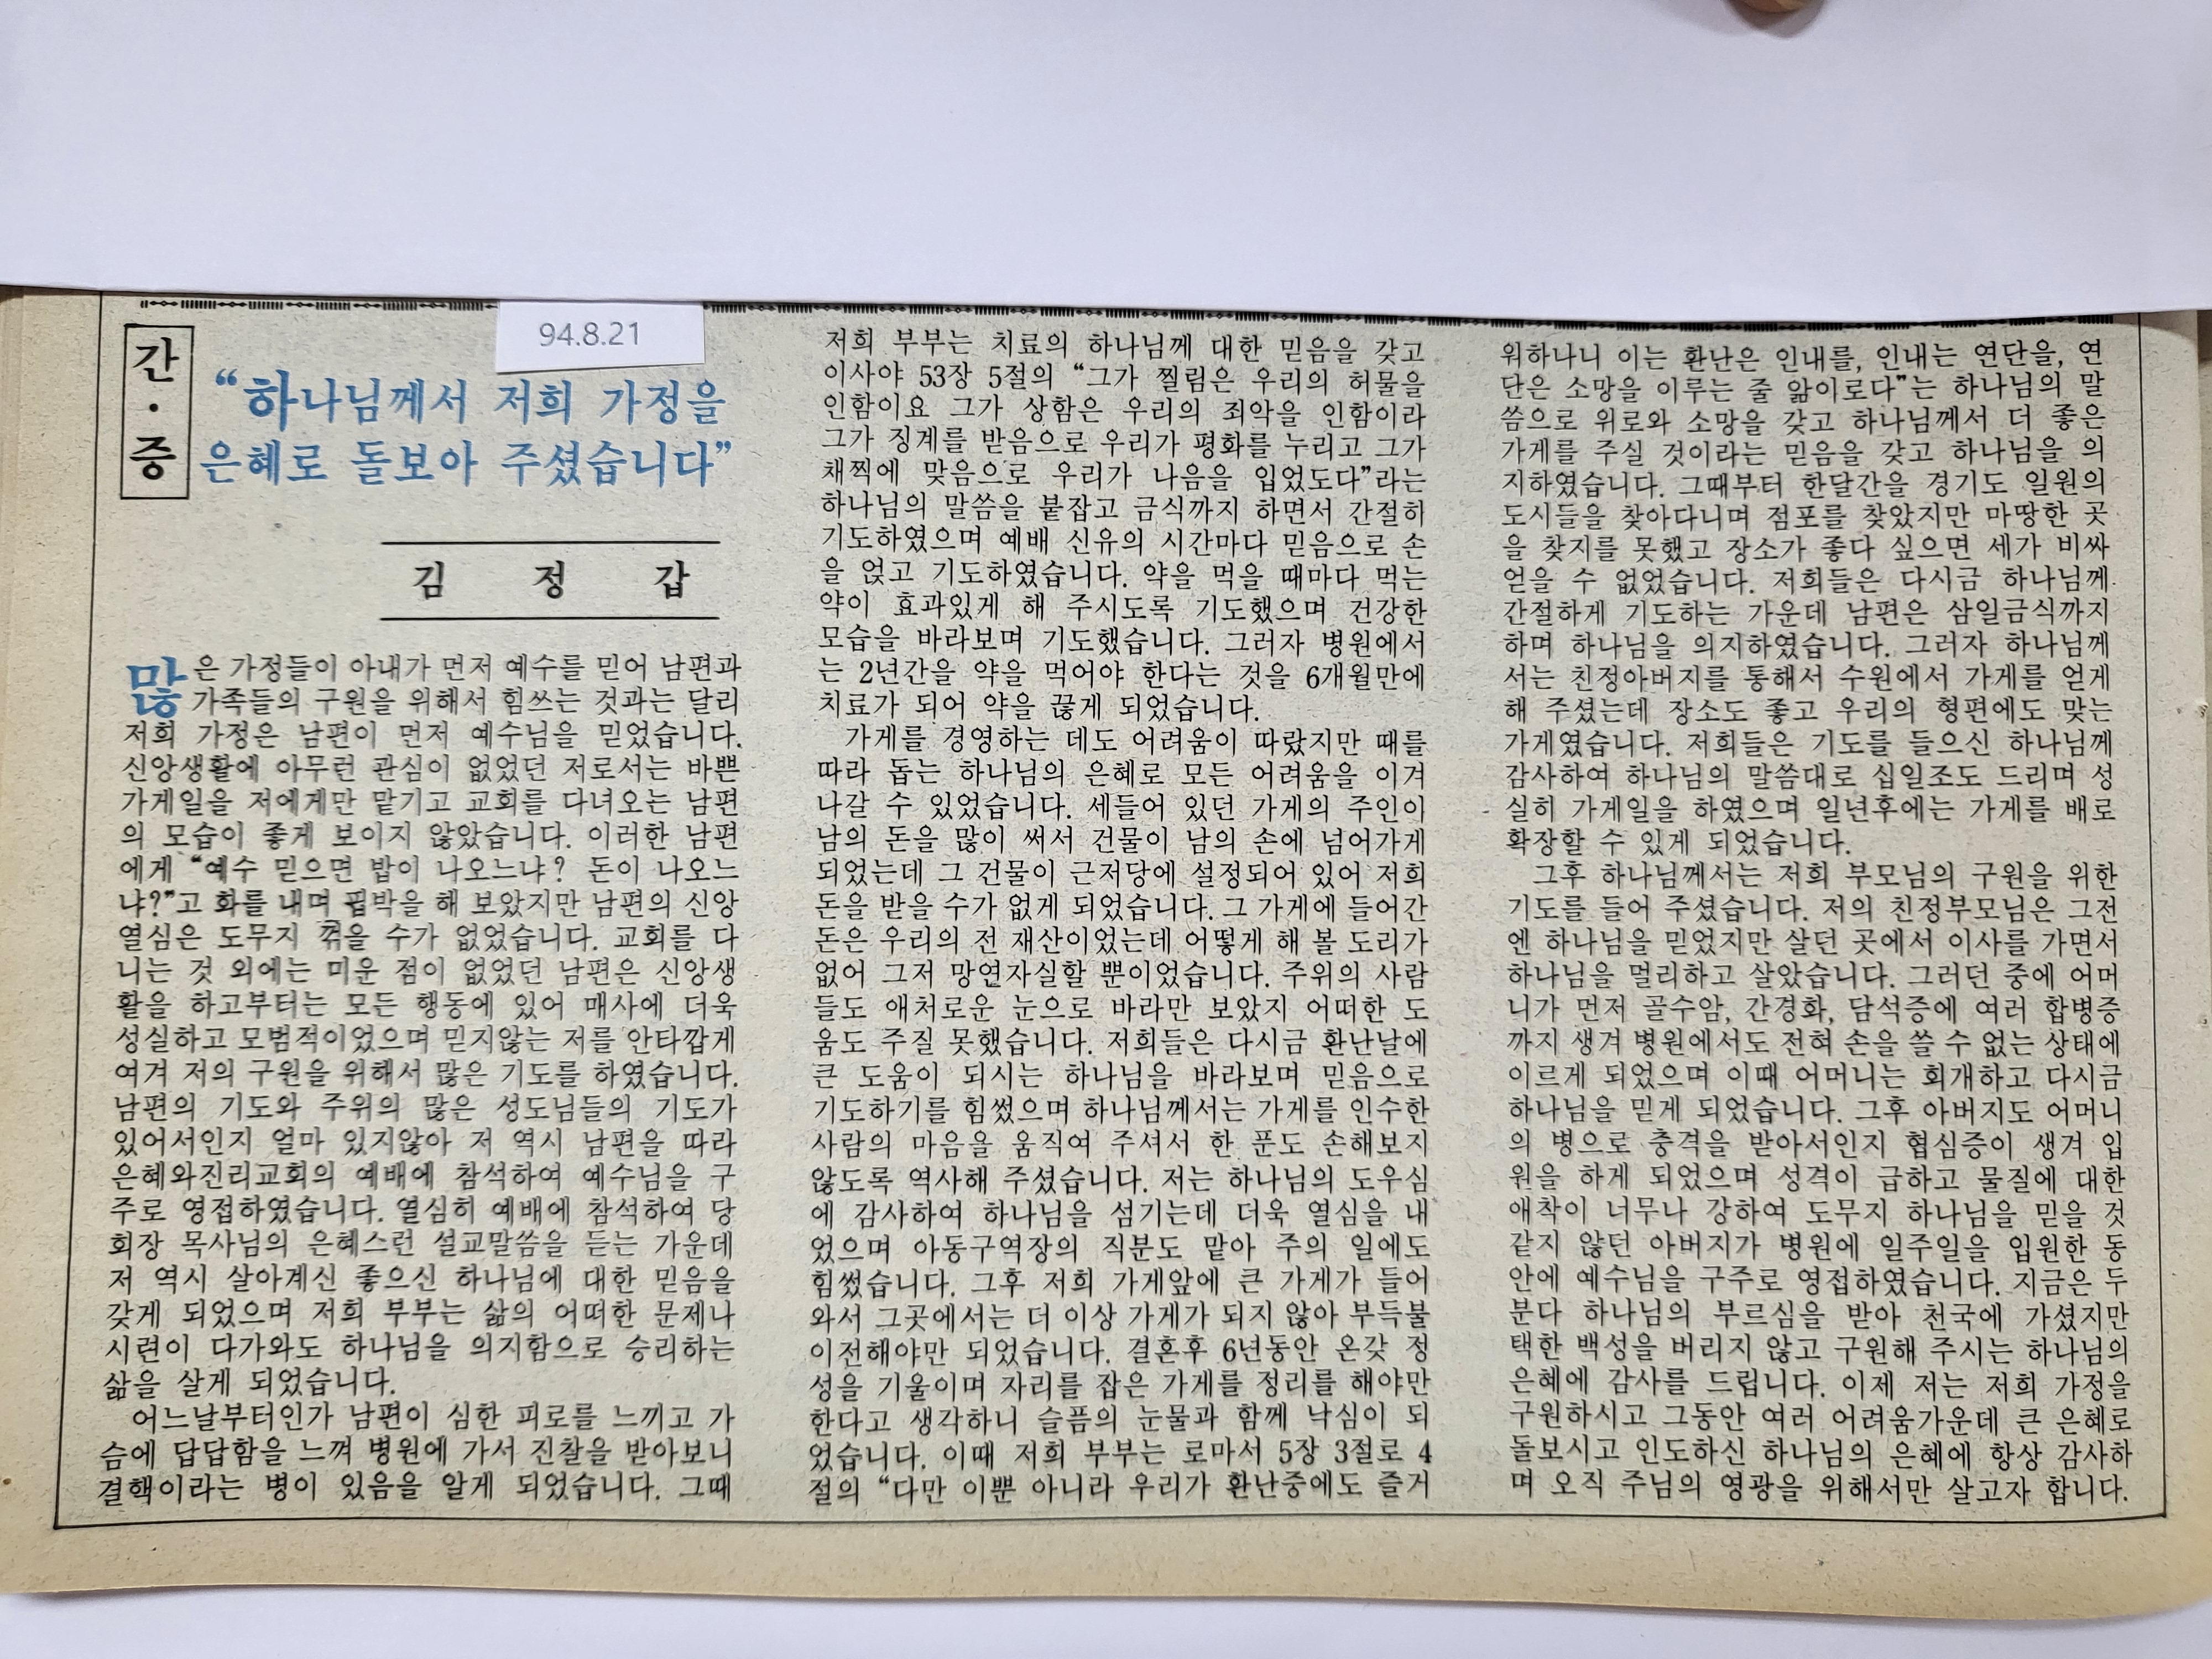 94.8.21
간·증
“하나님께서 저희 가정을
은혜로 돌보아 주셨습니다”
김 정 갑
많은 가정들이 아내가 먼저 예수를 믿어 남편과
가족들의 구원을 위해서 힘쓰는 것과는 달리
저희 가정은 남편이 먼저 예수님을 믿었습니다.
신앙생활에 아무런 관심이 없었던 저로서는 바쁜
가게일을 저에게만 맡기고 교회를 다녀오는 남편
의 모습이 좋게 보이지 않았습니다. 이러한 남편
에게 “예수 믿으면 밥이 나오느냐? 돈이 나오느
냐?”고 화를 내며 핍박을 해 보았지만 남편의 신앙
열심은 도무지 꺾을 수가 없었습니다. 교회를 다
니는 것 외에는 미운 점이 없었던 남편은 신앙생
활을 하고부터는 모든 행동에 있어 매사에 더욱
성실하고 모범적이었으며 믿지않는 저를 안타깝게
여겨 저의 구원을 위해서 많은 기도를 하였습니다.
남편의 기도와 주위의 많은 성도님들의 기도가
있어서인지 얼마 있지않아 저 역시 남편을 따라
은혜와진리교회의 예배에 참석하여 예수님을 구
주로 영접하였습니다. 열심히 예배에 참석하여 당
회장 목사님의 은혜스런 설교말씀을 듣는 가운데
저 역시 살아계신 좋으신 하나님에 대한 믿음을
갖게 되었으며 저희 부부는 삶의 어떠한 문제나
시련이 다가와도 하나님을 의지함으로 승리하는
삶을 살게 되었습니다.
어느날부터인가 남편이 심한 피로를 느끼고 가
슴에 답답함을 느껴 병원에 가서 진찰을 받아보니
결핵이라는 병이 있음을 알게 되었습니다. 그때
저희 부부는 치료의 하나님께 대한 믿음을 갖고
이사야 53장 5절의 “그가 찔림은 우리의 허물을
인함이요 그가 상함은 우리의 죄악을 인함이라
그가 징계를 받음으로 우리가 평화를 누리고 그가
채찍에 맞음으로 우리가 나음을 입었도다”라는
하나님의 말씀을 붙잡고 금식까지 하면서 간절히
기도하였으며 예배 신유의 시간마다 믿음으로 손
을 얹고 기도하였습니다. 약을 먹을 때마다 먹는
약이 효과있게 해 주시도록 기도했으며 건강한
모습을 바라보며 기도했습니다. 그러자 병원에서
는 2년간을 약을 먹어야 한다는 것을 6개월만에
치료가 되어 약을 끊게 되었습니다.
가게를 경영하는 데도 어려움이 따랐지만 때를
따라 돕는 하나님의 은혜로 모든 어려움을 이겨
나갈 수 있었습니다. 세들어 있던 가게의 주인이
남의 돈을 많이 써서 건물이 남의 손에 넘어가게
되었는데 그 건물이 근저당에 설정되어 있어 저희
돈을 받을 수가 없게 되었습니다. 그 가게에 들어간
돈은 우리의 전 재산이었는데 어떻게 해 볼 도리가
없어 그저 망연자실할 뿐이었습니다. 주위의 사람
들도 애처로운 눈으로 바라만 보았지 어떠한 도
움도 주질 못했습니다. 저희들은 다시금 환난날에
큰 도움이 되시는 하나님을 바라보며 믿음으로
기도하기를 힘썼으며 하나님께서는 가게를 인수한
사람의 마음을 움직여 주셔서 한 푼도 손해보지
않도록 역사해 주셨습니다. 저는 하나님의 도우심
에 감사하여 하나님을 섬기는데 더욱 열심을 내
었으며 아동구역장의 직분도 맡아 주의 일에도
힘썼습니다. 그후 저희 가게앞에 큰 가게가 들어
와서 그곳에서는 더 이상 가게가 되지 않아 부득불
이전해야만 되었습니다. 결혼후 6년동안 온갖 정
성을 기울이며 자리를 잡은 가게를 정리를 해야만
한다고 생각하니 슬픔의 눈물과 함께 낙심이 되
었습니다. 이때 저희 부부는 로마서 5장 3절로 4
절의 “다만 이뿐 아니라 우리가 환난중에도 즐거
워하나니 이는 환난은 인내를, 인내는 연단을, 연
단은 소망을 이루는 줄 앎이로다”는 하나님의 말
씀으로 위로와 소망을 갖고 하나님께서 더 좋은
가게를 주실 것이라는 믿음을 갖고 하나님을 의
지하였습니다. 그때부터 한달간을 경기도 일원의
도시들을 찾아다니며 점포를 찾았지만 마땅한 곳
을 찾지를 못했고 장소가 좋다 싶으면 세가 비싸
얻을 수 없었습니다. 저희들은 다시금 하나님께
간절하게 기도하는 가운데 남편은 삼일금식까지
하며 하나님을 의지하였습니다. 그러자 하나님께
서는 친정아버지를 통해서 수원에서 가게를 얻게
해 주셨는데 장소도 좋고 우리의 형편에도 맞는
가게였습니다. 저희들은 기도를 들으신 하나님께
감사하여 하나님의 말씀대로 십일조도 드리며 성
실히 가게일을 하였으며 일년후에는 가게를 배로
확장할 수 있게 되었습니다.
그후 하나님께서는 저희 부모님의 구원을 위한
기도를 들어 주셨습니다. 저의 친정부모님은 그전
엔 하나님을 믿었지만 살던 곳에서 이사를 가면서
하나님을 멀리하고 살았습니다. 그러던 중에 어머
니가 먼저 골수암, 간경화, 담석증에 여러 합병증
까지 생겨 병원에서도 전혀 손을 쓸 수 없는 상태에
이르게 되었으며 이때 어머니는 회개하고 다시금
하나님을 믿게 되었습니다. 그후 아버지도 어머니
의 병으로 충격을 받아서인지 협심증이 생겨 입
원을 하게 되었으며 성격이 급하고 물질에 대한
애착이 너무나 강하여 도무지 하나님을 믿을 것
같지 않던 아버지가 병원에 일주일을 입원한 동
안에 예수님을 구주로 영접하였습니다. 지금은 두
분다 하나님의 부르심을 받아 천국에 가셨지만
택한 백성을 버리지 않고 구원해 주시는 하나님의
은혜에 감사를 드립니다. 이제 저는 저희 가정을
구원하시고 그동안 여러 어려움가운데 큰 은혜로
돌보시고 인도하신 하나님의 은혜에 항상 감사하
며 오직 주님의 영광을 위해서만 살고자 합니다.